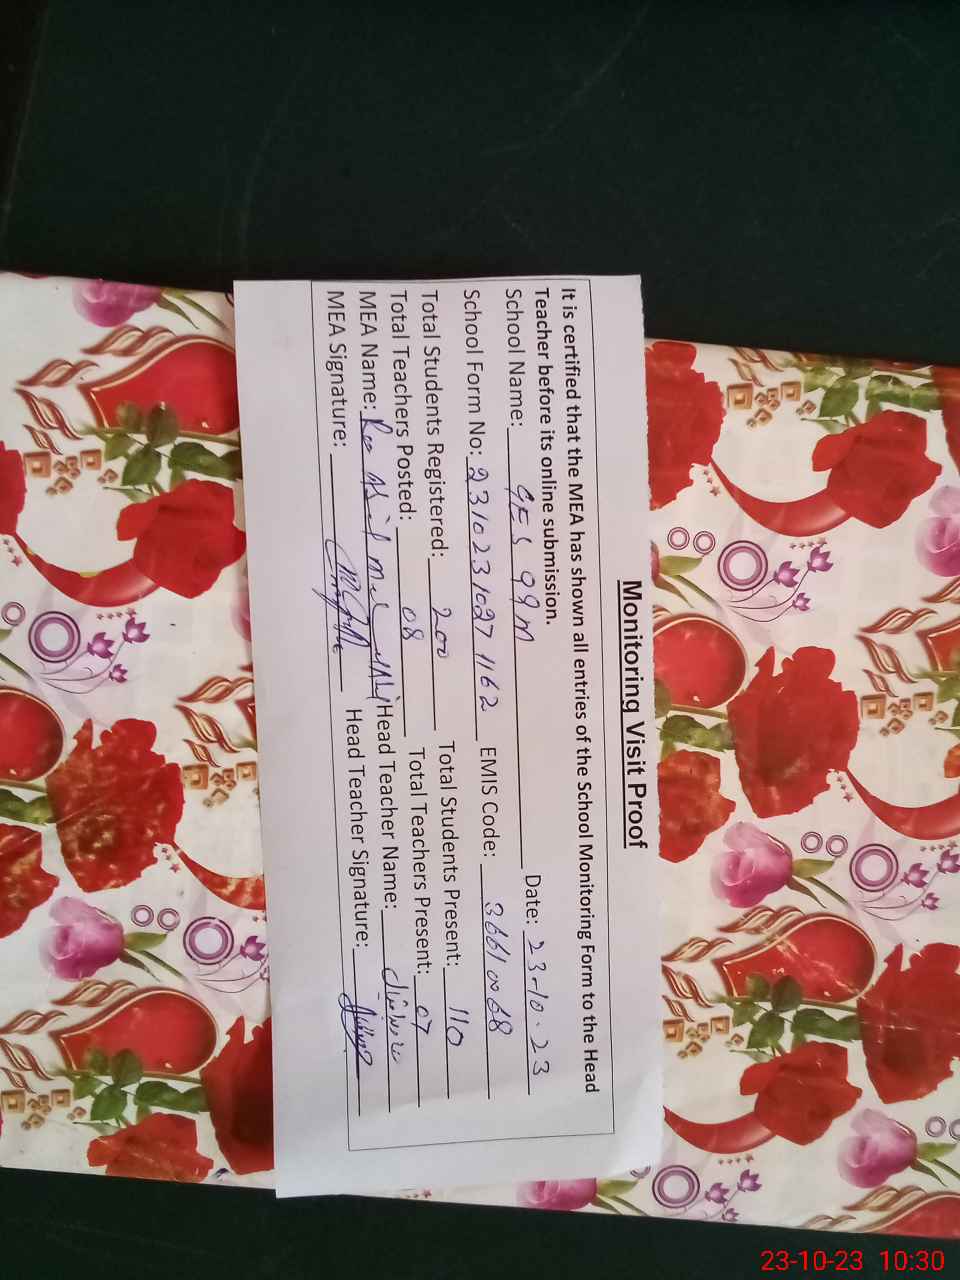 Monitoring Visit Proof
It is certified that the MEA has shown all entries of the School Monitoring Form to the Head
Teacher before its online submission.
School Name: GES 99 M Date: 23-10-23
School Form No: 23102310271162 EMIS Code: 36610068
Total Students Registered: 200 Total Students Present: 110
Total Teachers Posted: 08 Total Teachers Present: 07
MEA Name: Head Teacher Name:
MEA Signature: Head Teacher Signature:
23-10-23 10:30